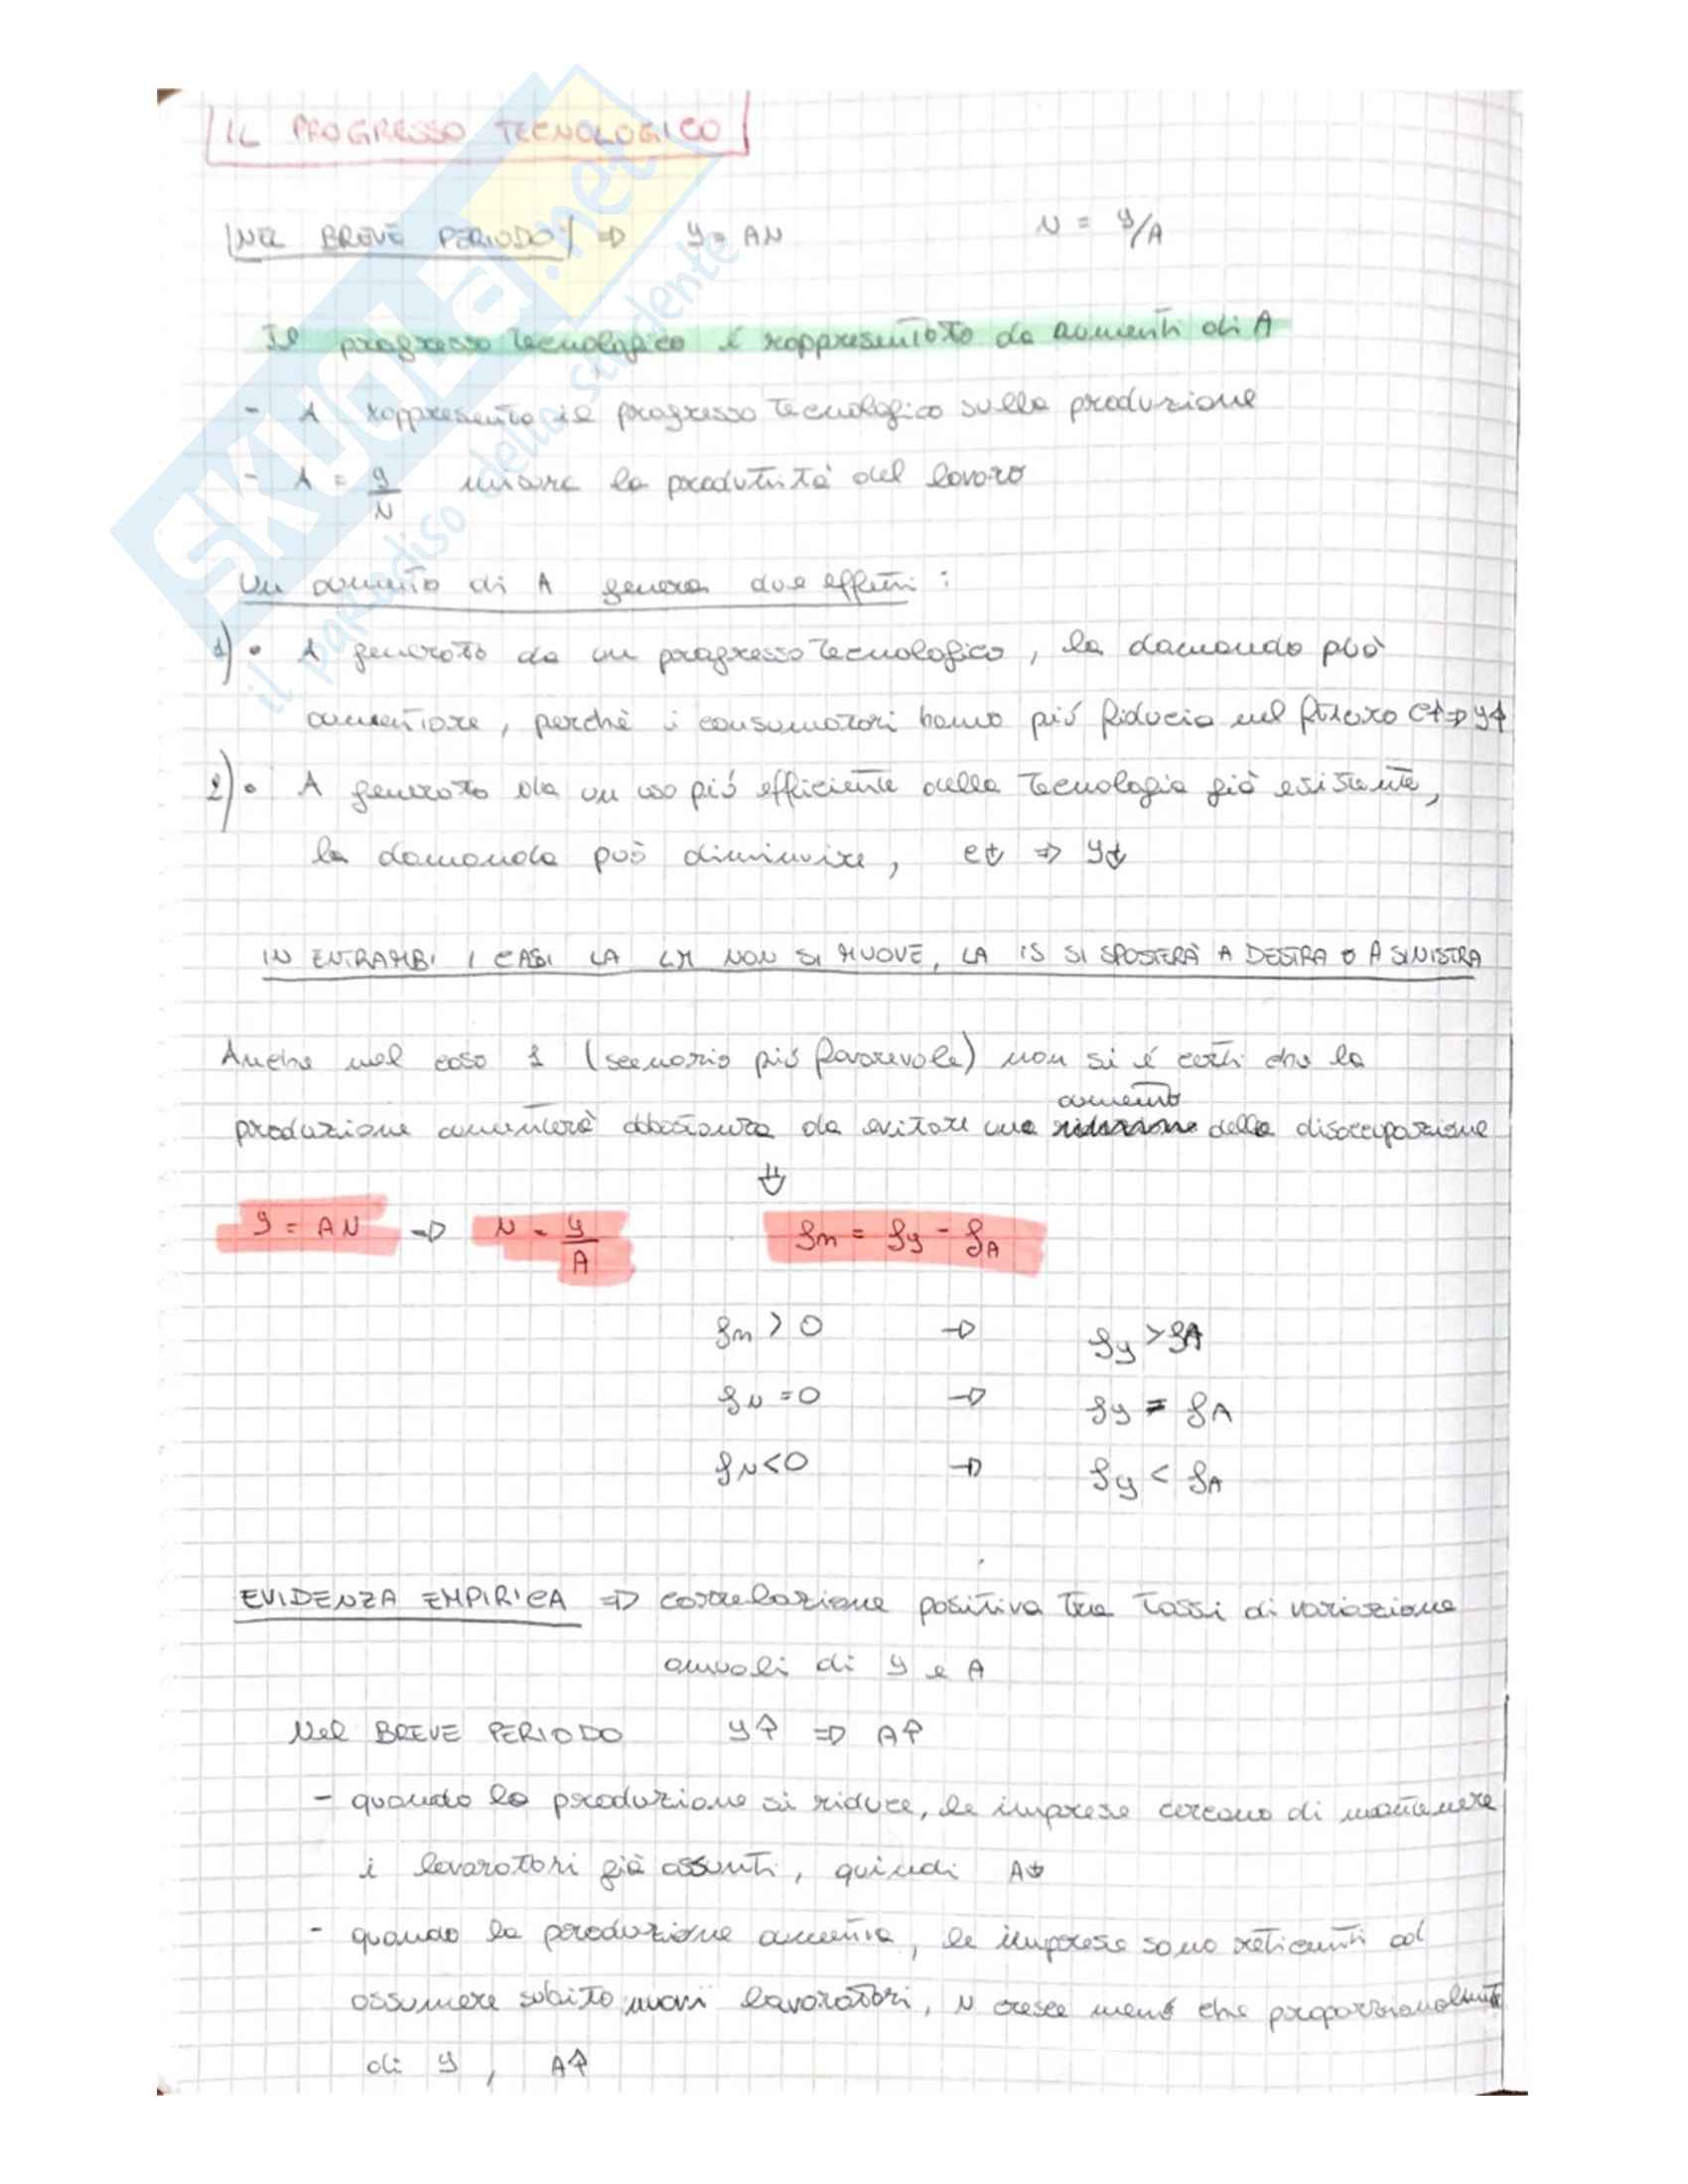 IL PROGRESSO TECNOLOGICO
NEL BREVE PERIODO ⇒ Y = AN N = Y/A
Il progresso tecnologico è rappresentato da aumenti di A
- A rappresenta il progresso tecnologico sulla produzione
- A = Y/N misura la produttività del lavoro
Un aumento di A genera due effetti :
1) • A generato da un progresso tecnologico, la domanda può
aumentare, perchè i consumatori hanno più fiducia nel futuro C↑⇒ Y↑
2) • A generato da un uso più efficiente della tecnologia già esistente,
la domanda può diminuire, C↓ ⇒ Y↓
IN ENTRAMBI I CASI LA LM NON SI MUOVE, LA IS SI SPOSTERÀ A DESTRA O A SINISTRA
Anche nel caso 1 (scenario più favorevole) non si è certi che la
aumento
produzione aumenterà abbastanza da evitare una riduzione della disoccupazione
⇓
Y = AN → N = Y/A gn = gy - gA
gn > 0 → gy > gA
gN = 0 → gy = gA
gN < 0 → gy < gA
EVIDENZA EMPIRICA ⇒ correlazione positiva tra tassi di variazione
annuali di Y e A
Nel BREVE PERIODO Y↑ ⇒ A↑
- quando la produzione si riduce, le imprese cercano di mantenere
i lavoratori già assunti, quindi A↓
- quando la produzione aumenta, le imprese sono reticenti ad
assumere subito nuovi lavoratori, N cresce meno che proporzionalmente
di Y, A↑
SKUOLA.net
il paradiso dello studente